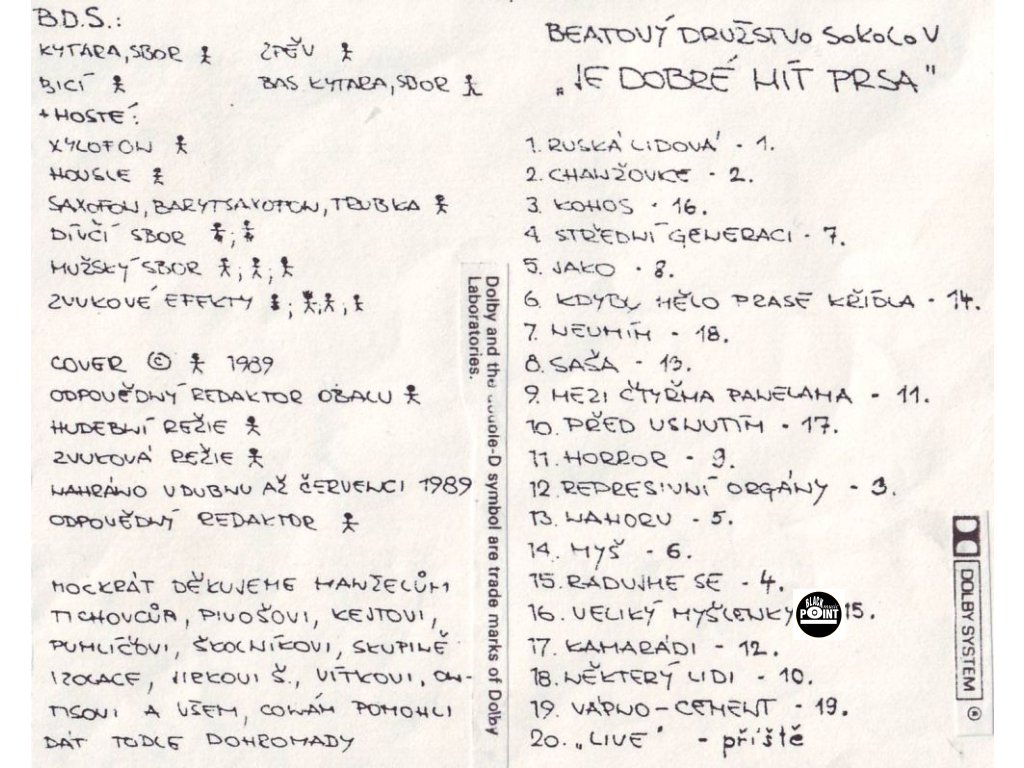 B.D.S.:
KYTARA, SBOR ZPĚV
BICÍ BAS KYTARA, SBOR
+ HOSTÉ:
XYLOFON
HOUSLE
SAXOFON, BARYTSAXOFON, TRUBKA
DÍVČÍ SBOR ;
MUŽSKÝ SBOR ; ;
ZVUKOVÉ EFEKTY ; , ;
COVER © 1989
ODPOVĚDNÝ REDAKTOR OBALU
HUDEBNÍ REŽIE
ZVUKOVÁ REŽIE
NAHRÁNO V DUBNU AŽ ČERVENCI 1989
ODPOVĚDNÝ REDAKTOR
MOCKRÁT DĚKUJEME MANŽELŮM
TICHOVCŮM, PIVOŠOVI, KEJTOVI,
PUMLIČOVI, ŠKOLNÍKOVI, SKUPINĚ
IZOLACE, JIRKOVI Š., VÍTKOVI, ON-
TISOVI A VŠEM, CO NÁM POMOHLI
DÁT TODLE DOHROMADY
Dolby and the double-D symbol are trade marks of Dolby
Laboratories.
BEATOVÝ DRUŽSTVO SOKOLOV
„JE DOBRÉ MÍT PRSA"
1. RUSKÁ LIDOVÁ - 1.
2. CHANŽOVKE - 2.
3. KOHOS - 16.
4. STŘEDNÍ GENERACI - 7.
5. JAKO - 8.
6. KDYBY MĚLO PRASE KŘÍDLA - 14.
7. NEUMÍM - 18.
8. SAŠA - 13.
9. MEZI ČTYŘMA PANELAMA - 11.
10. PŘED USNUTÍM - 17.
11. HORROR - 9.
12. REPRESIVNÍ ORGÁNY - 3.
13. NAHORU - 5.
14. MYŠ - 6.
15. RADUJME SE - 4.
16. VELIKÝ MYŠLENKY 15.
17. KAMARÁDI - 12.
18. NĚKTERÝ LIDI - 10.
19. VÁPNO-CEMENT - 19.
20. „LIVE" - příště
BLACK POINT music
DOLBY SYSTEM ®